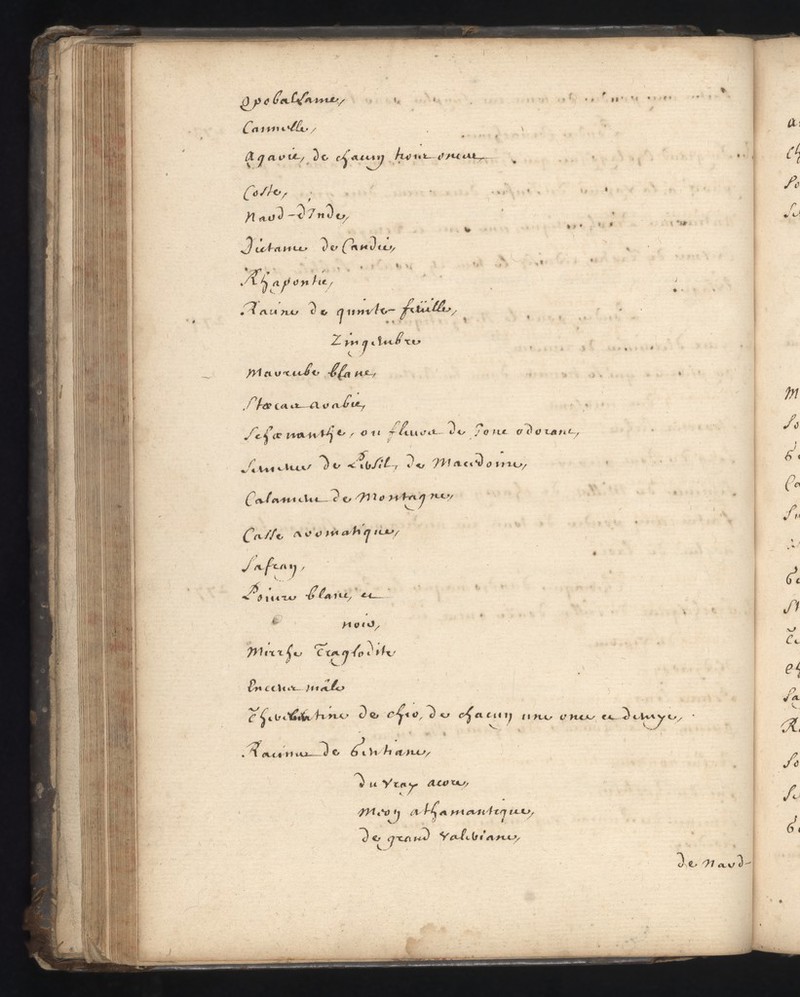 Opobalsame,
Cannelle,
Agaric, de chacun trois onces
Coste,
Nard-d'Inde,
Dictame de Candie,
Rhapontic,
Racine de quinte-feüille,
Zingembre
Marrube blanc,
Stœcas arabic,
Schœnanthe, ou fleurs de Jonc odorant,
Semence de Persil, de Macedoine,
Calament de Montagne,
Casse aromatique,
Safran,
Poivre blanc, et
noir,
Mirrhe Traglodite
Encens mâle
Therebentine de chio, de chacun une once et demye,
Racines de Gentiane,
du vray acore,
Meon athamantique,
de grand Valeriane,
de Nard-